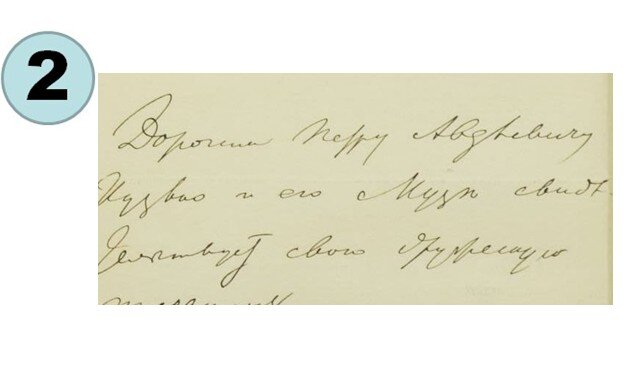 2
Дорогому Петру Авдѣевичу
Кузько и его Музѣ свидѣ-
тельствуетъ свою дружескую